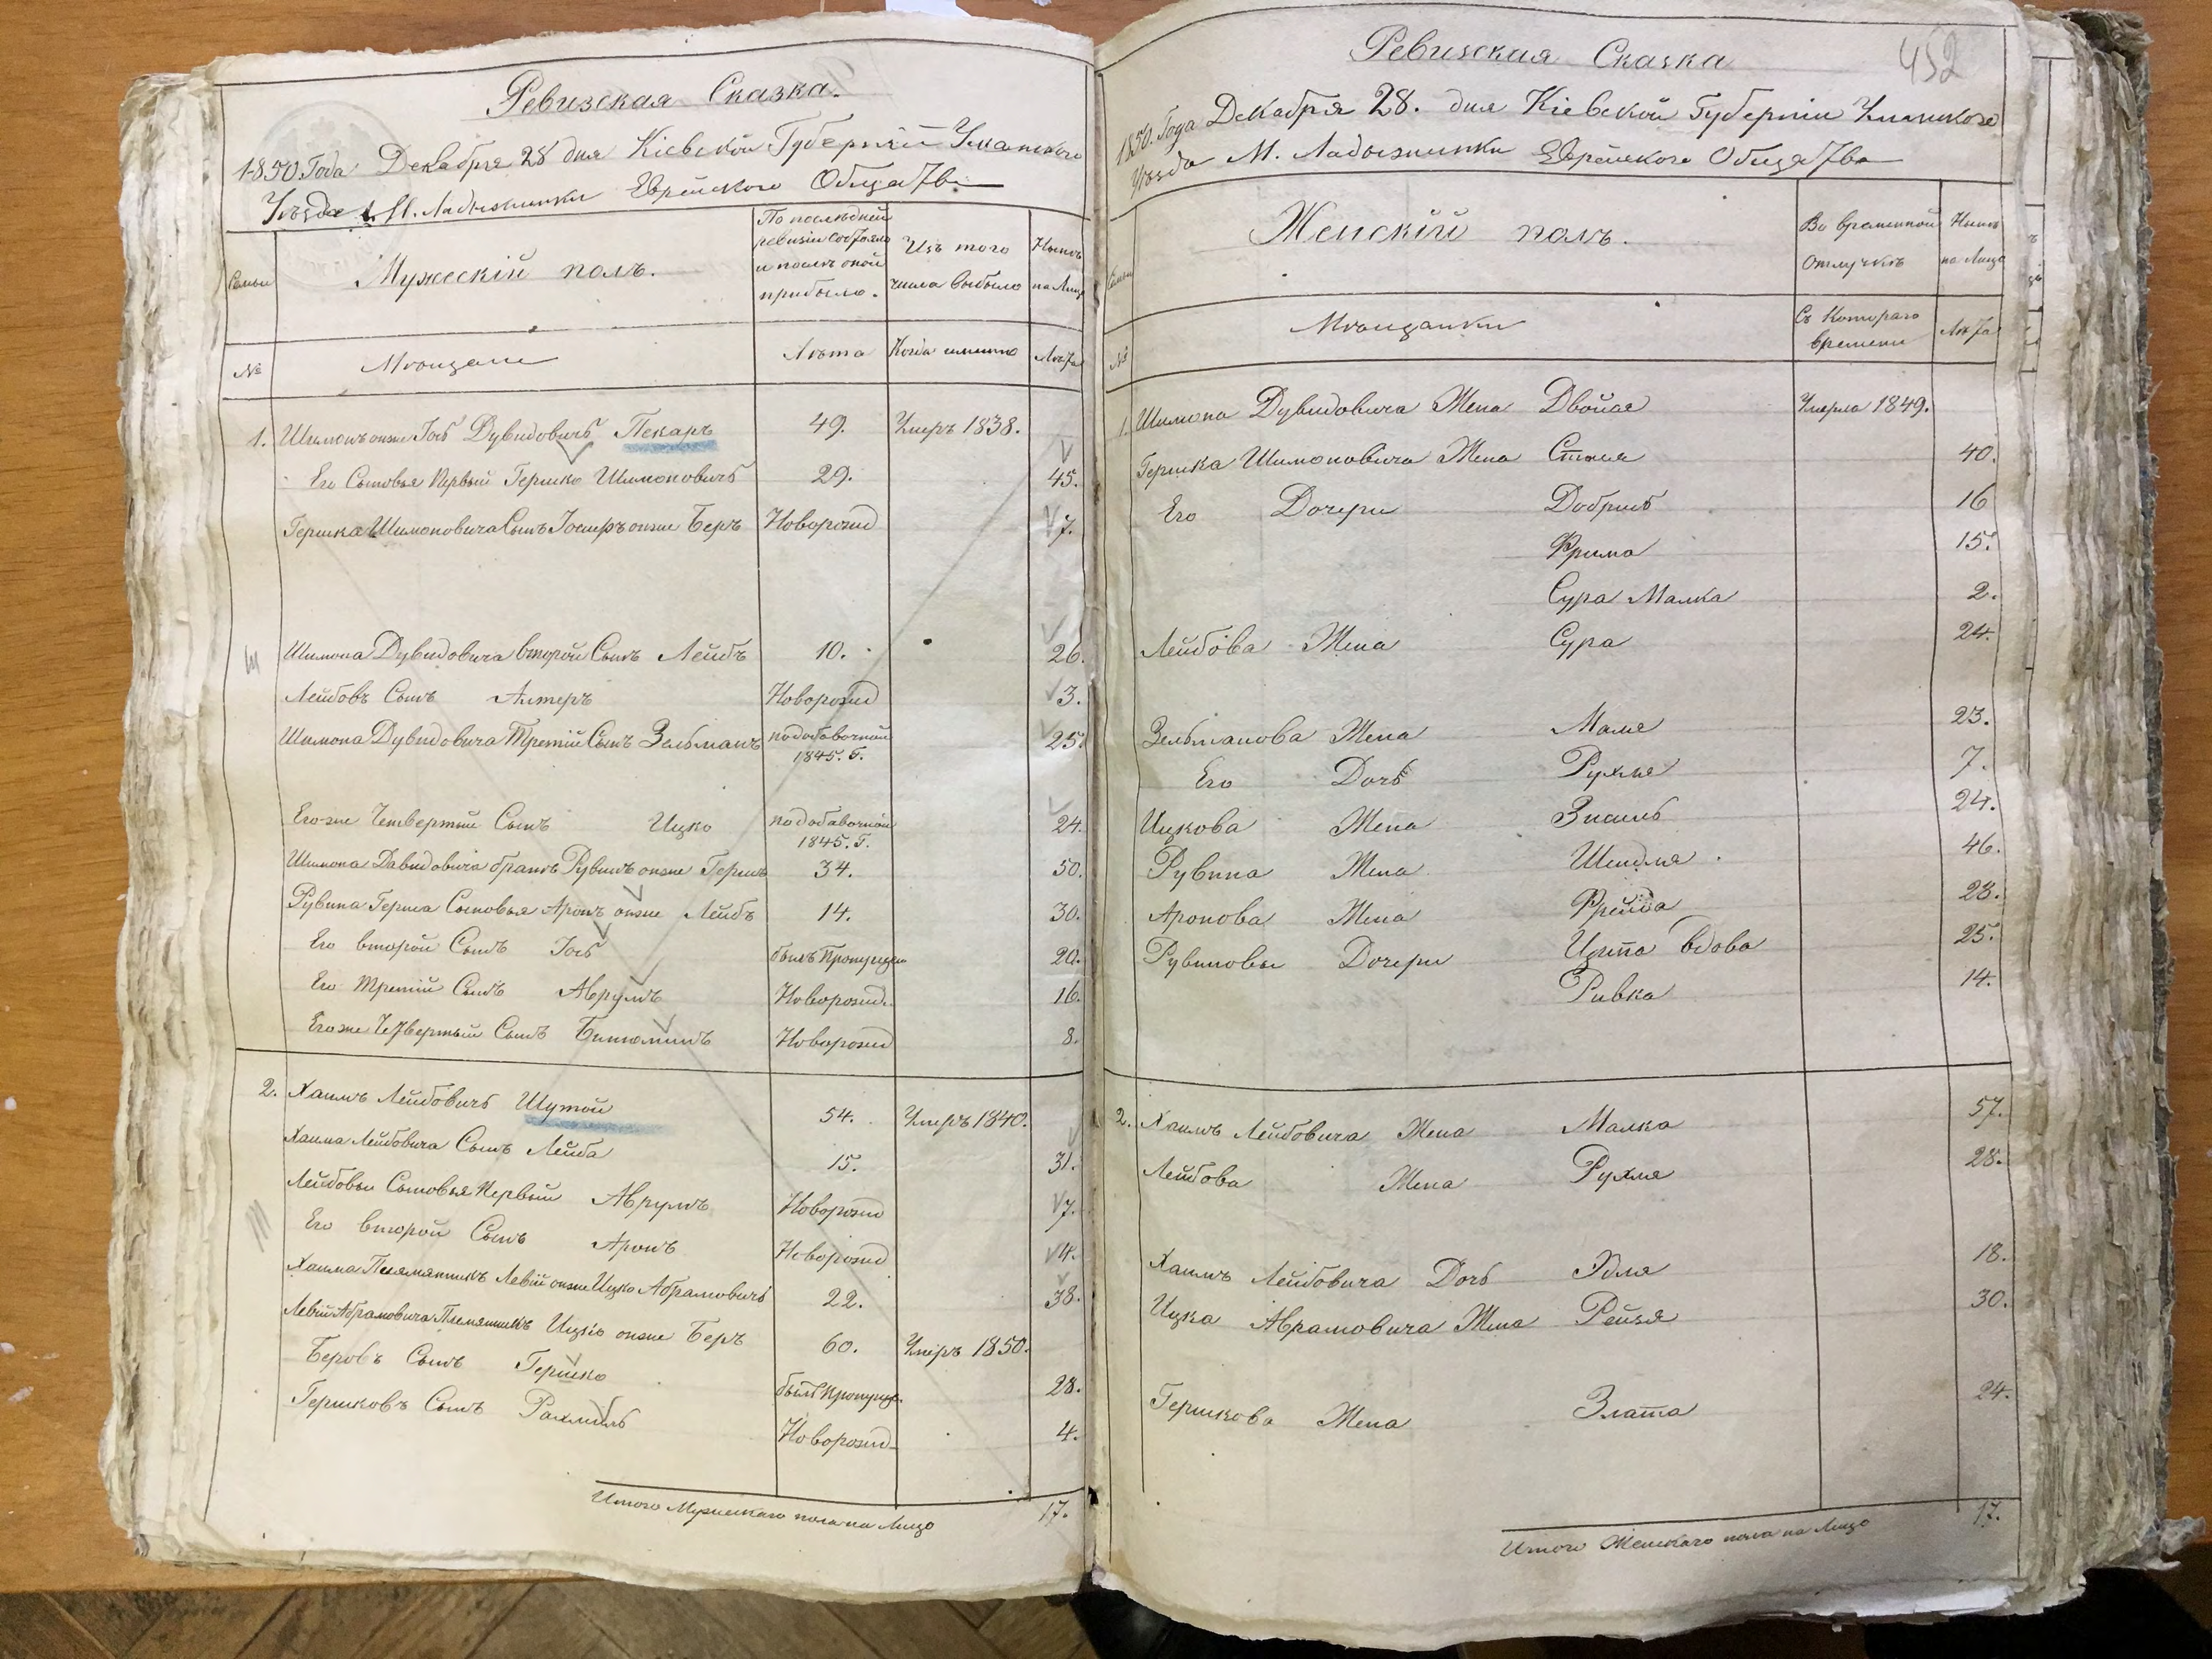 Ревизская Сказка.
1850 Года Декабря 28 дня Кіевской Губерніи Уманскаго
Уѣзда М. Ладыжинки Еврейскаго Общества
Семьи
Мужескій полъ.
По послѣдней ревизіи состояло и послѣ оной прибыло.
Изъ того числа выбыло
Нынѣ на Лицо
№
Мѣщане
Лѣта
Когда именно
Лѣта
1. Шимонъ онже Іось Дувидовичъ Пекаръ 49. Умеръ 1838.
Его Сыновья Первый Гершко Шимоновичъ 29. 45.
Гершка Шимоновича Сынъ Іосифъ онже Беръ Новорожд 7.
Шимона Дувидовича второй Сынъ Лейбъ 10. 26.
Лейбовъ Сынъ Алтеръ Новорожд 3.
Шимона Дувидовича Третій Сынъ Зельманъ по добавочной 1845. Г. 25.
Егоже Четвертый Сынъ Ицко по добавочной 1845. Г. 24.
Шимона Давидовича братъ Рувинъ онже Гершъ 34. 50.
Рувина Герша Сыновья Аронъ онже Лейбъ 14. 30.
Его второй Сынъ Іось былъ Пропущен 20.
Его Третій Сынъ Аврумъ Новорожд. 16.
Егоже Четвертый Сынъ Биньюминъ Новорожд 8.
2. Хаимъ Лейбовичъ Шутой 54. Умеръ 1840.
Хаима Лейбовича Сынъ Лейба 15. 31.
Лейбовы Сыновья Первый Аврумъ Новорожд 7.
Его второй Сынъ Аронъ Новорожд 4.
Хаима Племянникъ Левій онже Ицко Абрамовичъ 22. 38.
Левій Абрамовича Племянникъ Ицко онже Беръ 60. Умеръ 1850.
Беровъ Сынъ Гершко былъ Пропущ. 28.
Гершковъ Сынъ Рахмиль Новорожд 4.
Итого Мужескаго пола на Лицо 17.
452
Ревизская Сказка
1850. Года Декабря 28. дня Кіевской Губерніи Уманскаго
Уѣзда М. Ладыжинки Еврейскаго Общества
Семьи
Женскій полъ.
Во временной отлучкѣ
Нынѣ на Лицо
№
Мѣщанки
Съ Котораго времени
Лѣта
1. Шимона Дувидовича Жена Двойся Умерла 1849.
Гершка Шимоновича Жена Стыся 40.
Его Дочери Добришъ 16
Фрима 15.
Сура Малка 2.
Лейбова Жена Сура 24.
Зельманова Жена Маля 23.
Его Дочь Рухля 7.
Ицкова Жена 24.
Рувина Жена Шендля 46.
Аронова Жена Фрейда 28.
Рувиновы Дочери Ципа вдова 25.
Ривка 14.
2. Хаимъ Лейбовича Жена Малка 57.
Лейбова Жена Рухля 28.
Хаимъ Лейбовича Дочь Эдля 18.
Ицка Абрамовича Жена Рейзя 30.
Гершкова Жена Злата 24.
Итого Женскаго пола на Лицо 17.